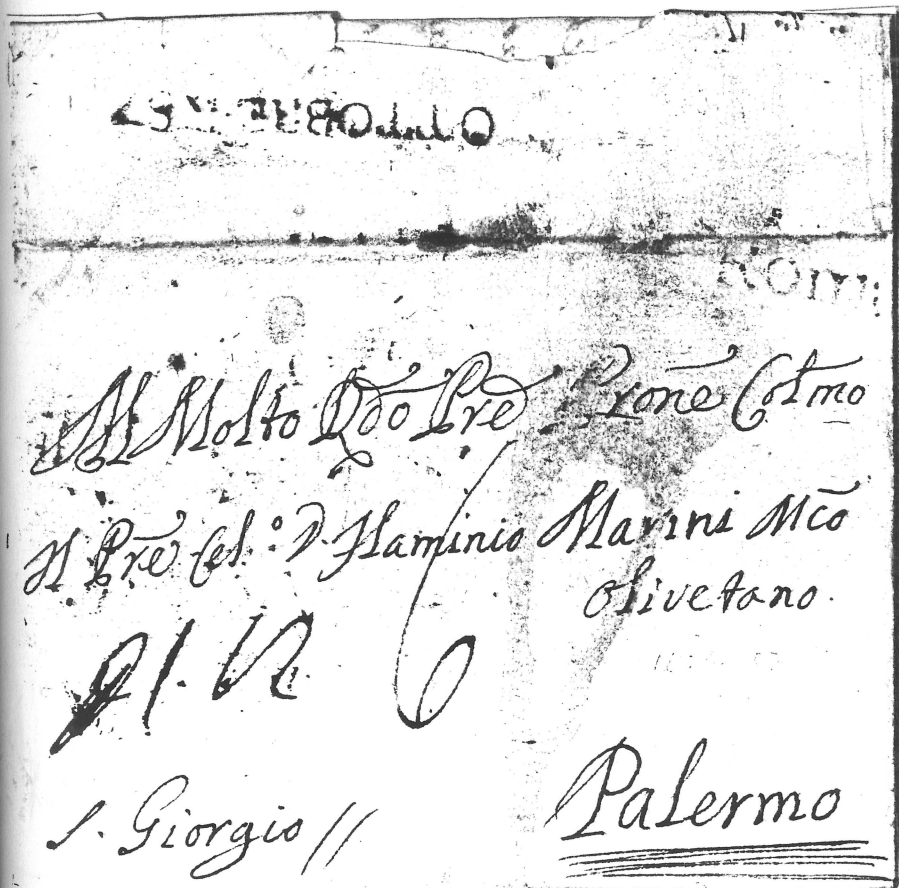 OTTOBRE
Al Molto Rdo Pre Prone Colmo
Il Pre Cel.° D. Flaminio Marini Mco
Olivetano.
6
S. Giorgio //
Palermo